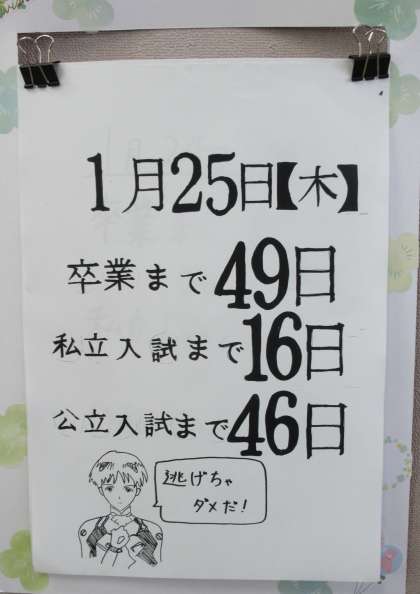 1月25日【木】
卒業まで49日
私立入試まで16日
公立入試まで46日
逃げちゃ
ダメだ!